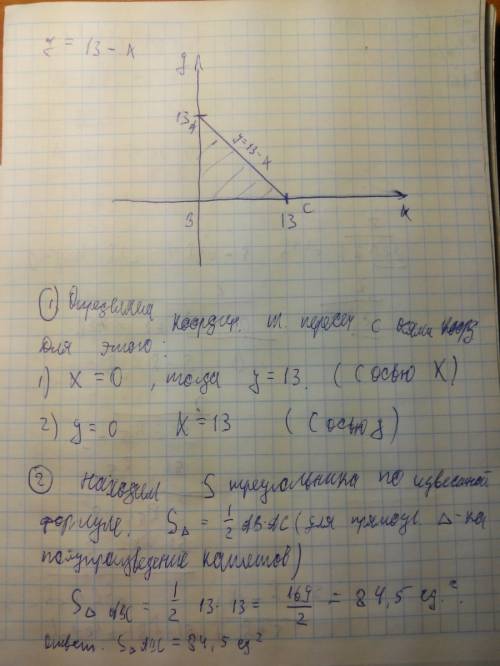 y = 13 - x
y
13 A
y=13-x
B
13
C
x
① Определим координ. т. пересеч с осями коорд
Для этого:
1) x = 0, тогда y = 13. (с осью X)
2) y = 0 x = 13 (с осью y)
② Находим S треугольника по известной
формуле. S△ = 1/2 AB·AC (для прямоуг. △-ка
полупроизведение катетов)
S△ ABC = 1/2 13·13 = 169/2 = 84,5 ед.².
Ответ. S△ABC = 84,5 ед²